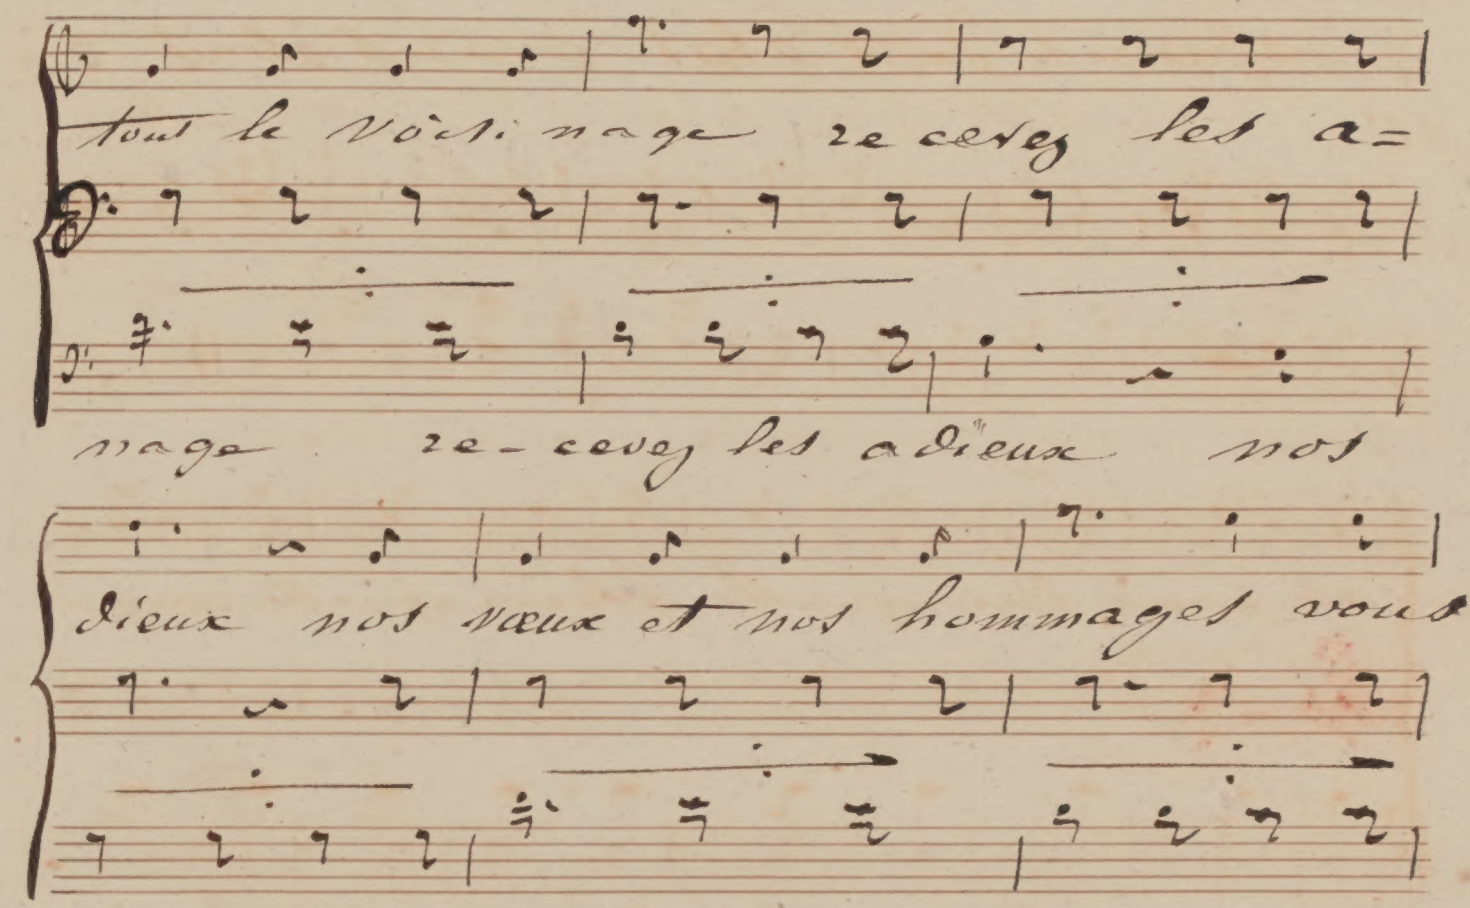 tout le voisi nage re cevez les a=
nage re- cevez les adieux nos
dieux nos vœux et nos hommages vous